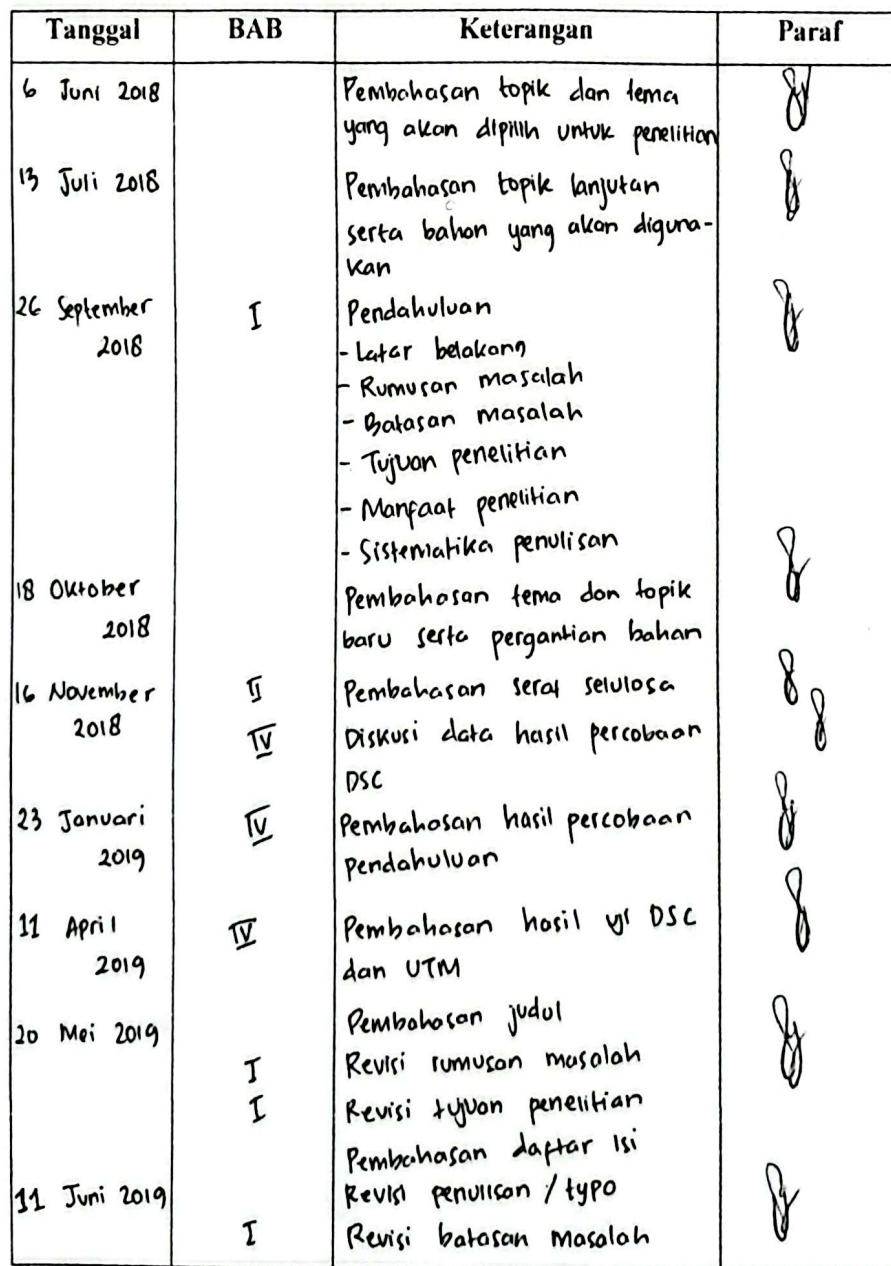 Tanggal BAB Keterangan Paraf
6 Juni 2018 Pembahasan topik dan tema
yang akan dipilih untuk penelitian
13 Juli 2018 Pembahasan topik lanjutan
serta bahan yang akan diguna-
kan
26 September I Pendahuluan
2018 - Latar belakang
- Rumusan masalah
- Batasan masalah
- Tujuan penelitian
- Manfaat penelitian
- Sistematika penulisan
18 Oktober Pembahasan tema dan topik
2018 baru serta pergantian bahan
16 November II Pembahasan serat selulosa
2018 IV Diskusi data hasil percobaan
DSC
23 Januari IV Pembahasan hasil percobaan
2019 pendahuluan
11 April IV Pembahasan hasil uji DSC
2019 dan UTM
20 Mei 2019 Pembahasan judul
I Revisi rumusan masalah
I Revisi tujuan penelitian
Pembahasan daftar isi
11 Juni 2019 Revisi penulisan / typo
I Revisi batasan masalah